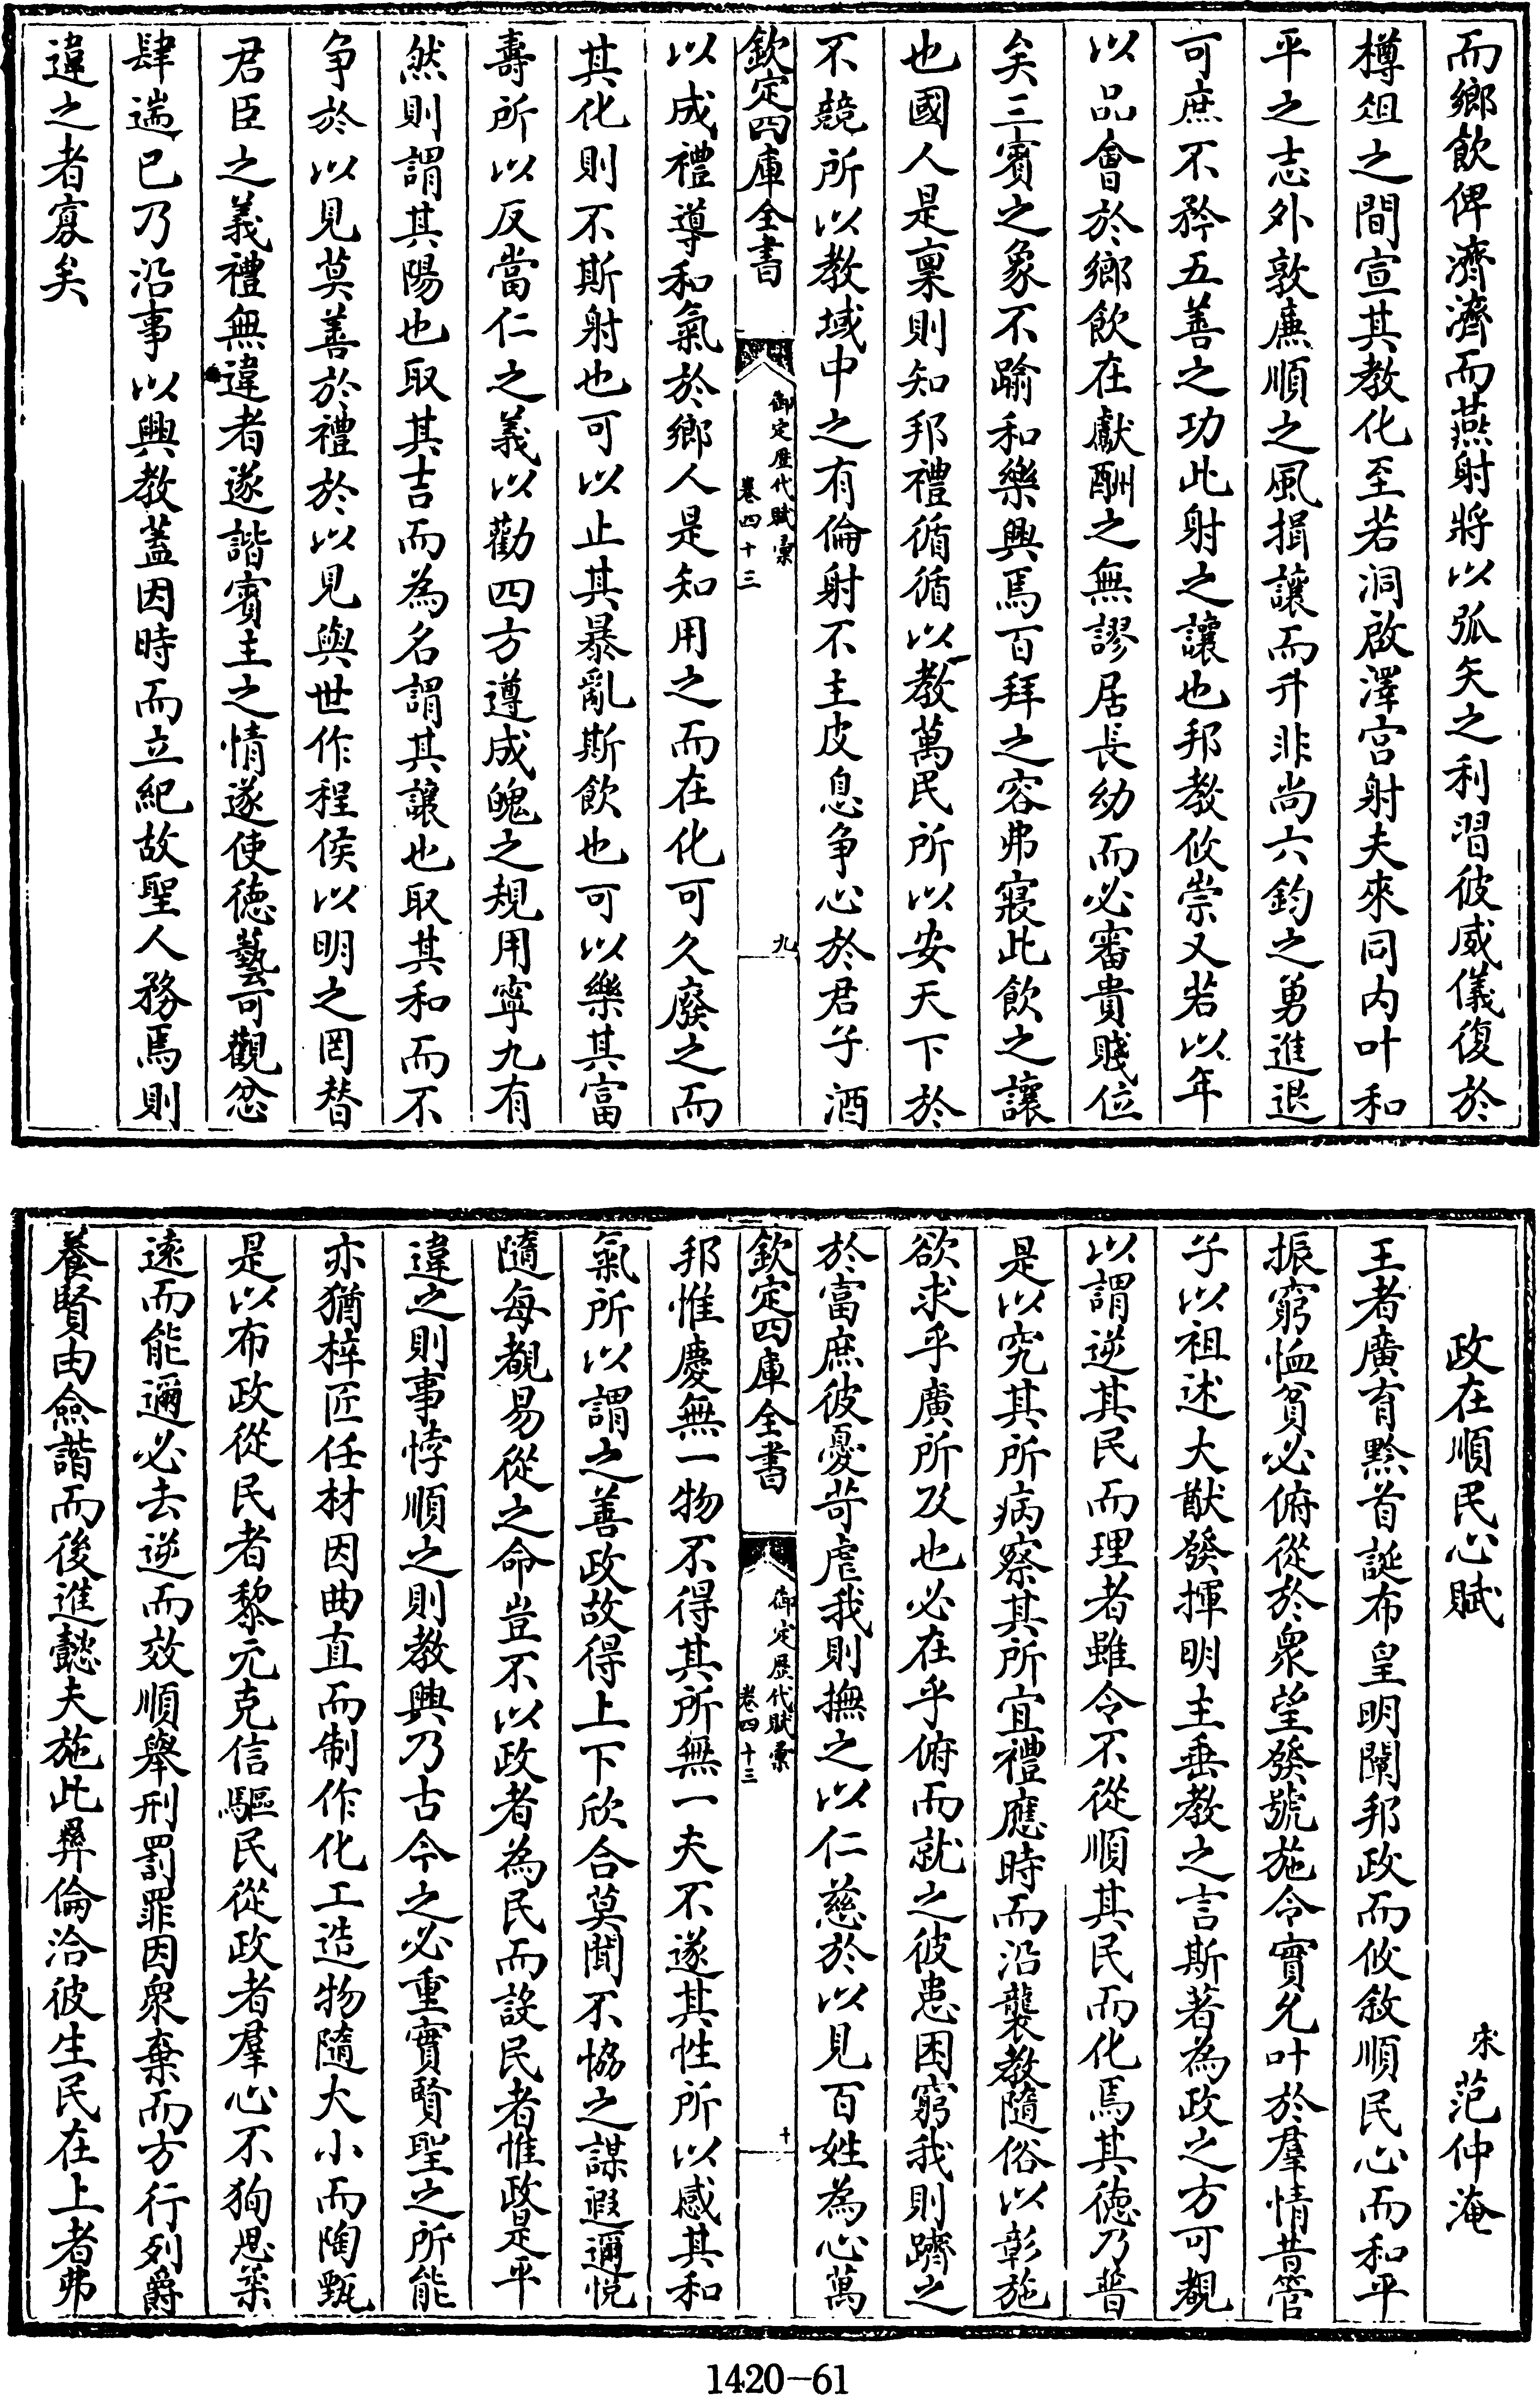 而鄉飲俾濟濟而燕射將以弧矢之利習彼威儀復於
樽俎之間宣其教化至若洞啟澤宫射夫來同内叶和
平之志外敦廉順之風揖讓而升非尚六鈞之勇進退
可庶不矜五善之功此射之讓也邦教攸崇又若以年
以品會於鄉飲在獻酬之無謬居長幼而必審貴賤位
矣三賓之象不踰和樂興焉百拜之容弗寢此飲之讓
也國人是稟則知邦禮循循以教萬民所以安天下於
不競所以教域中之有倫射不主皮息争心於君子酒
欽定四庫全書
御定歷代賦彙
卷四十三
九
以成禮導和氣於鄉人是知用之而在化可久廢之而
其化則不斯射也可以止其暴亂斯飲也可以樂其富
壽所以反當仁之義以勸四方遵成魄之規用寧九有
然則謂其陽也取其吉而為名謂其讓也取其和而不
争於以見莫善於禮於以見與世作程侯以明之罔替
君臣之義禮無違者遂諧賓主之情遂使德藝可觀忿
肆遄已乃沿事以興教蓋因時而立紀故聖人務焉則
違之者寡矣
政在順民心賦
宋范仲淹
王者廣育黔首誕布皇明闡邦政而攸敘順民心而和平
振窮恤貧必俯從於衆望發號施令實允叶於羣情昔管
子以祖述大猷發揮明主垂教之言斯著為政之方可覩
以謂逆其民而理者雖令不從順其民而化焉其德乃普
是以究其所病察其所宜禮應時而沿襲教隨俗以彰施
欲求乎廣所及也必在乎俯而就之彼患困窮我則躋之
於富庶彼憂苛虐我則撫之以仁慈於以見百姓為心萬
欽定四庫全書
御定歷代賦彙
卷四十三
十
邦惟慶無一物不得其所無一夫不遂其性所以感其和
氣所以謂之善政故得上下欣合莫聞不協之謀遐邇悅
隨每覩易從之命豈不以政者為民而設民者惟政是平
違之則事悖順之則教興乃古今之必重實賢聖之所能
亦猶梓匠任材因曲直而制作化工造物隨大小而陶甄
是以布政從民者黎元克信驅民從政者羣心不狥思柔
遠而能邇必去逆而效順舉刑罰罪因衆棄而方行列爵
養賢由僉諧而後進懿夫施此彞倫洽彼生民在上者弗
1420-61